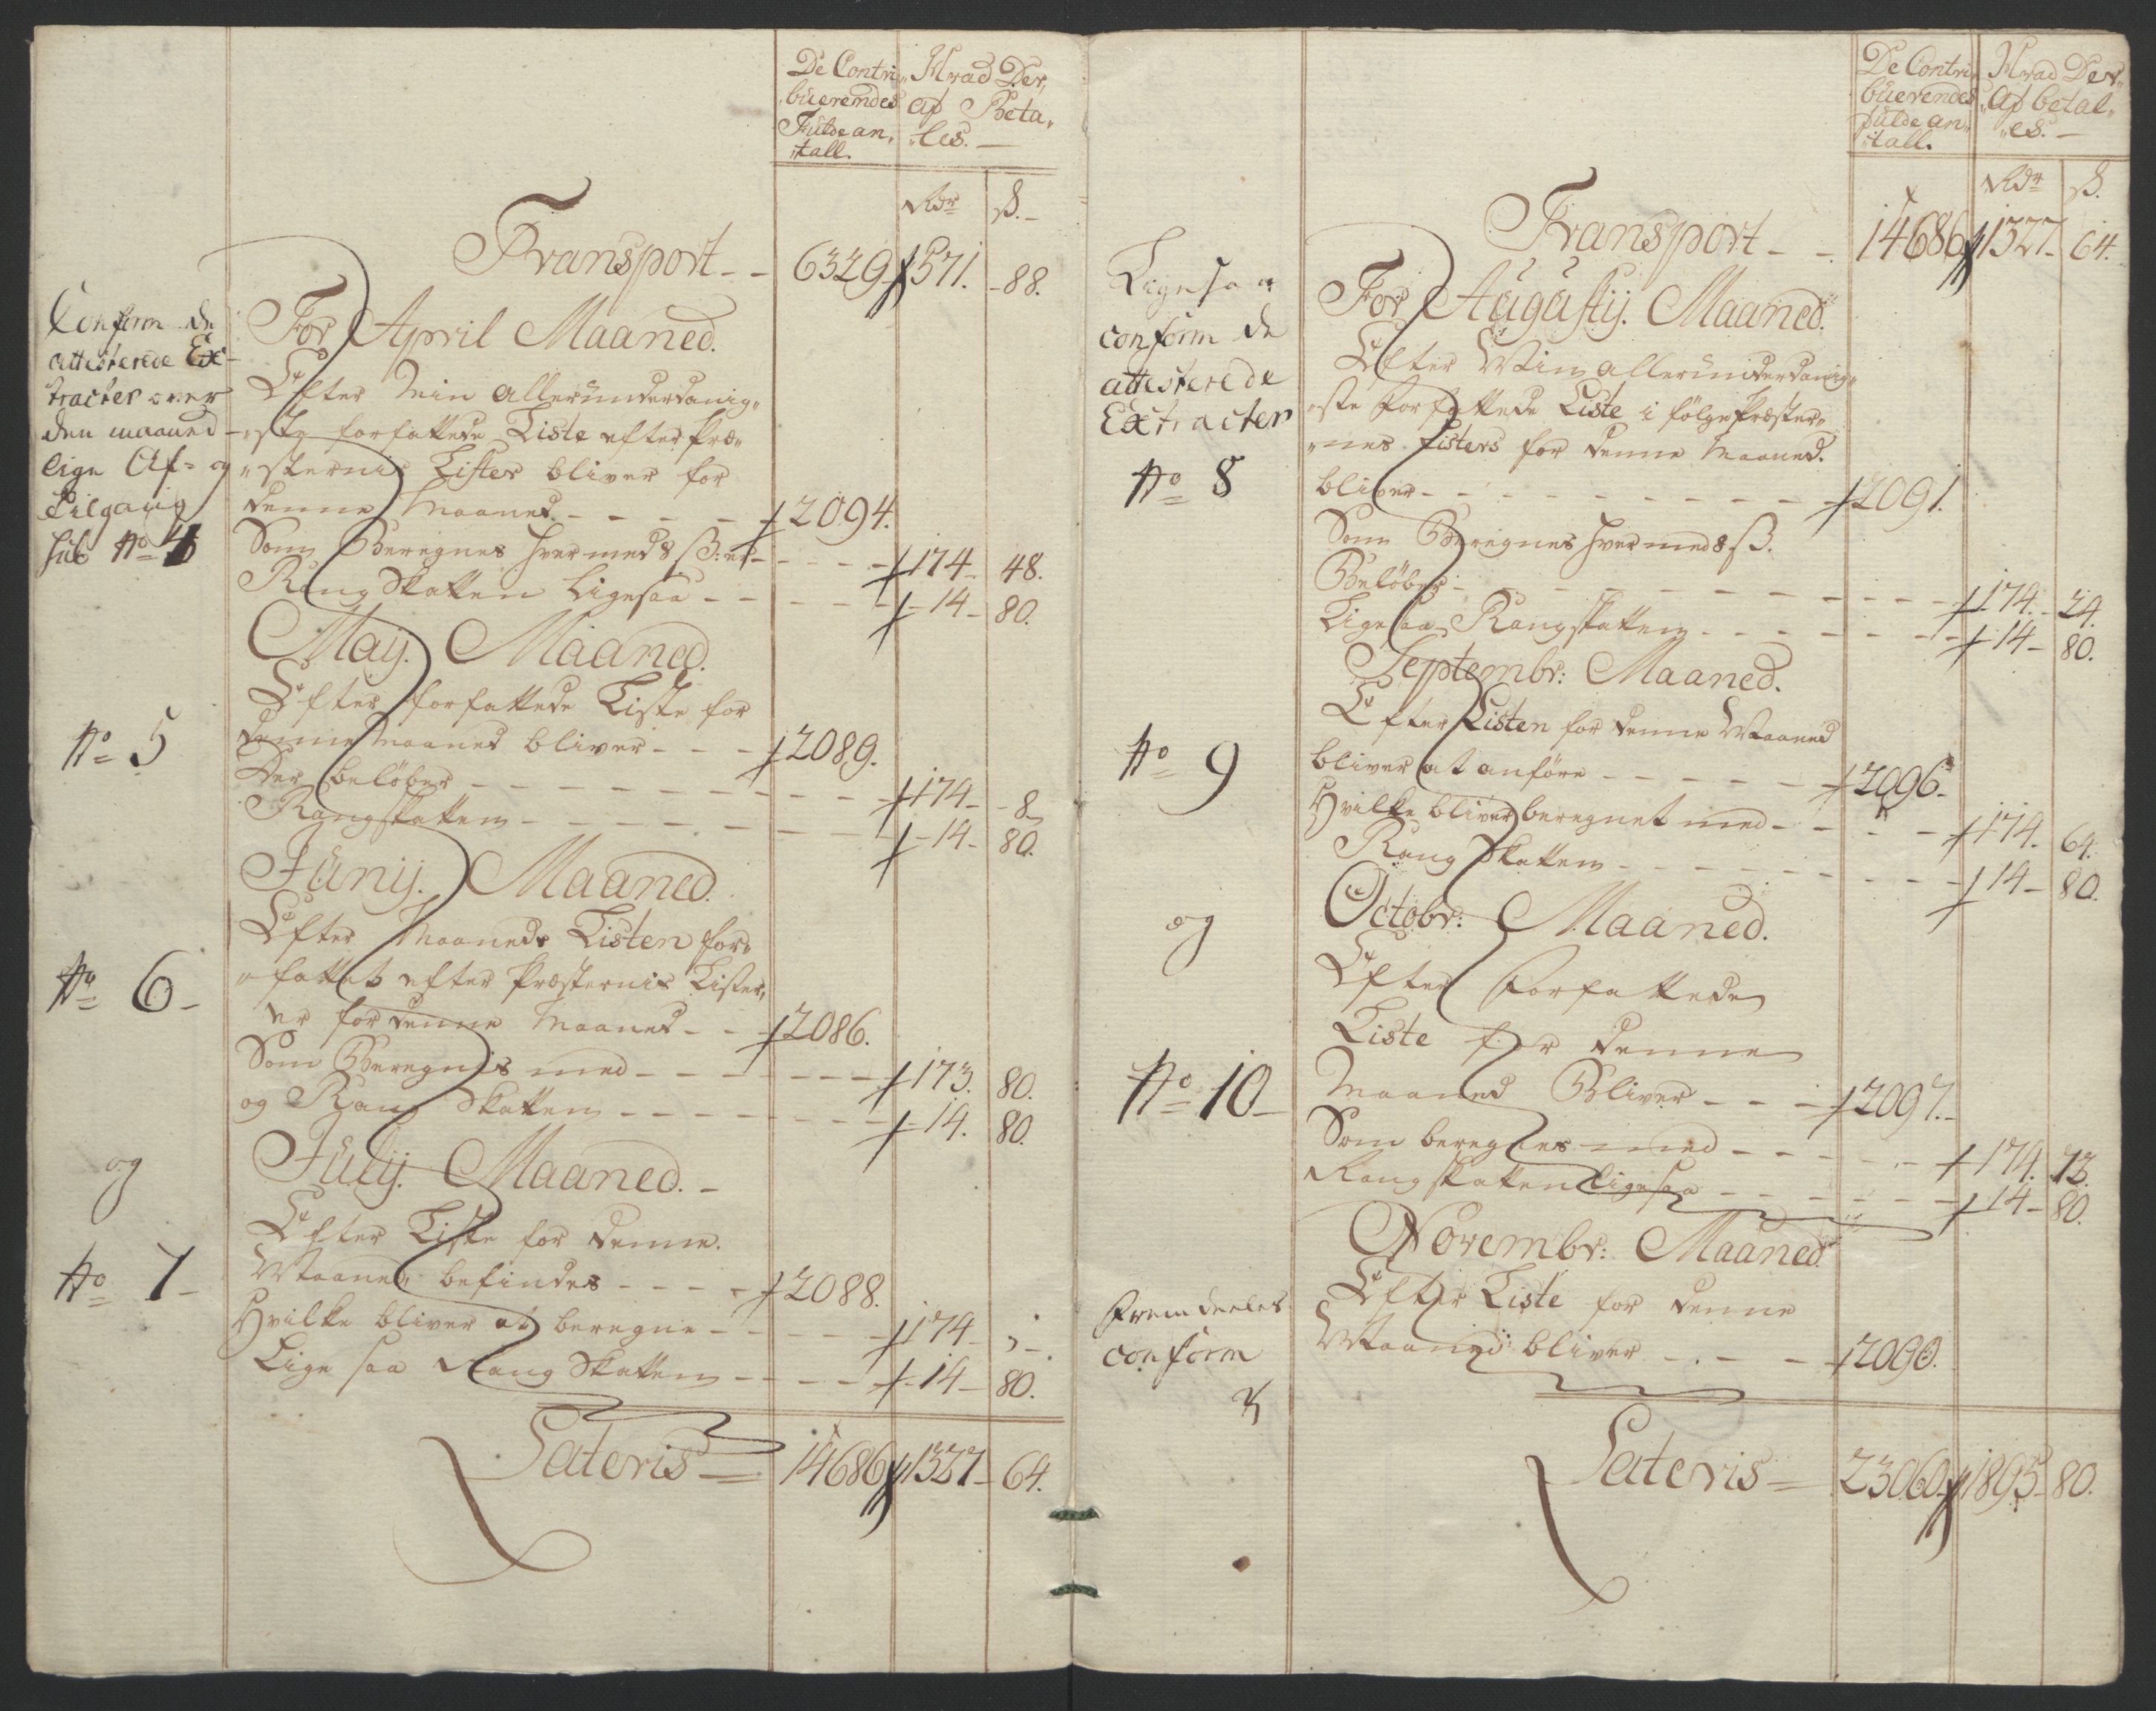 De Contri„ Hvad Der„
buerendes af Beta„
Fulde an„ „les. —
„tall.
Rdr ß. –
Transport – – 6329 571. – 88.
Conform de
attesterede Ex-
tracter over
den maaned-
lige Af- og
Tilgang
sub No 4
For April Maaned.
Efter Min allerunderdanig„
„ste forfattede Liste efter Præ„
„sternis Lister bliver for
denne Maaned. – – – – 2094.
Som Beregnes hver med 8 ß: er – – – – 174 – 48.
Rang Skatten Ligesaa – – – – – 14 – 80.
May. Maaned.
No 5
Efter forfattede Liste for
denne Maaned bliver – – – 2089.
Der beløber – – – – – – – – 174 – – 8
Rangskatten – – – – – – – – 14 – 80.
Junij. Maaned.
No 6 –
Efter Maaneds Listen for„
„fattet efter Præsternis Lister„
er for denne Maaned – – 2086.
Som Beregnis med – – – – – – – 173. 80.
og Rang Skatten – – – – – – – 14. 80.
og
Julij. Maaned. –
No 7 –
Efter Liste for denne.
Maaned befindes – – – – 2088.
Hvilke bliver at beregne – – – – – 174 – „ – .
Lige saa Rang Skatten – – – – – 14 – 80.
Lateris – 14686 1327 – 64.
De Contri„ Hvad Der„
buerendes „af betal„
fulde an„ „es. –
„tall.
Rdr ß.
Transport – – 14686 1327 – 64.
Ligesaa
conform de
attesterede
Extracter
No 8
For Augustij. Maaned.
Efter Min allerunderdanig„
„ste Forfattede Liste i følge Præster„
„nes Listers for denne Maaned.
bliver – – – – – – – – – 2091.
Som Beregnes hver med 8 ß.
Beløber – – – – – – – – – – 174. – 24.
Ligesaa Rangskatten – – – – – – – 14 – 80.
Septembr: Maaned.
No 9
Efter Listen for denne Maaned
bliver at anføre – – – – – – 2096 –
Hvilke bliver beregnet med – – – – 174. 64.
Rang Skatten – – – – – – – – 14 – 80.
og
Octobr: Maaned.
Efter Forfattede
Liste for denne
No 10 –
Maaned Bliver – – – 2097. –
Som beregnes med – – – – – – 174. 72.
Rangskatten ligesaa – – – – – – 14 – 80.
Novembr: Maaned
Efter Liste for denne
Fremdeeles
conform
Maaned bliver – . – – 2090.
Lateris – 23060 1895 – 80.